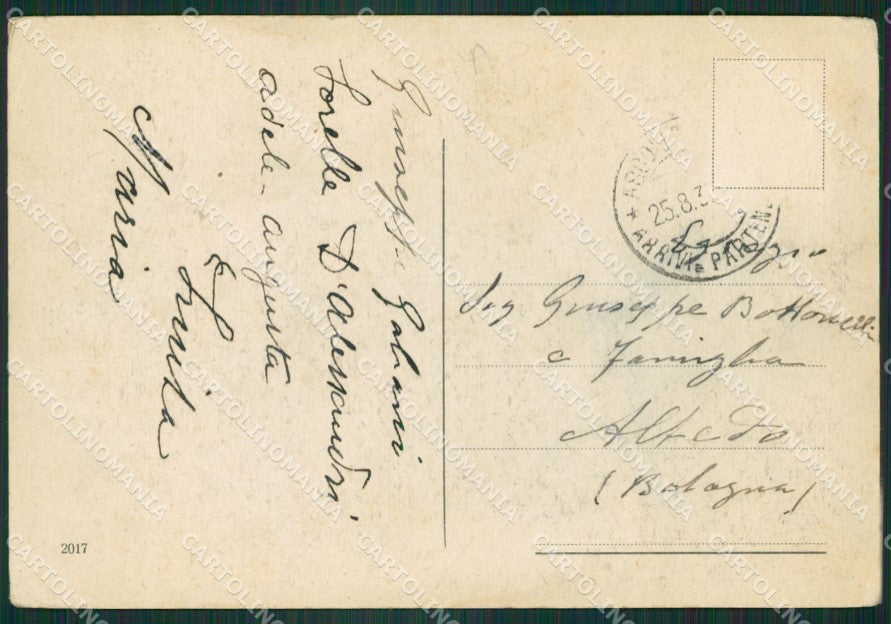 Giuseppe Galiani
Sorelle D'Alessandri
adele - augusta
& Linda
Maria
25.8.3
ARRIVI e PARTEN
Sig Giuseppe
e Famiglia
Albedo
(Bologna)
2017
CARTOLINOMANIA